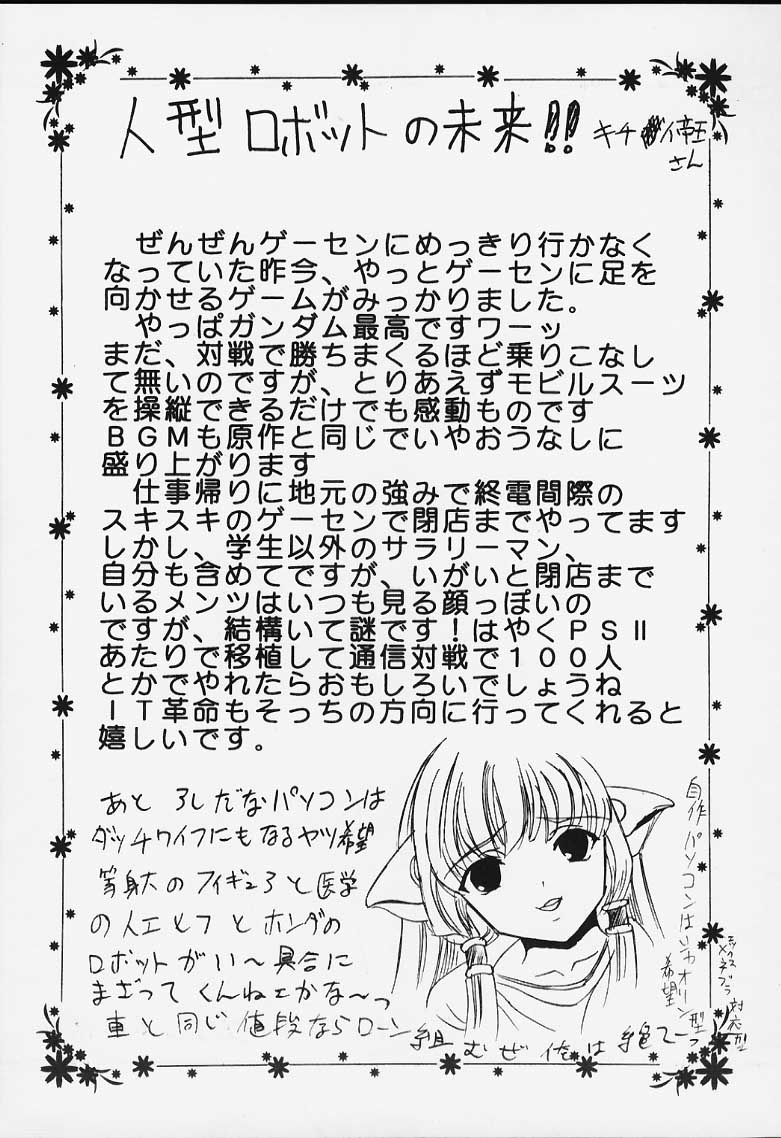 人型ロボットの未来!!
キチ
イ帝王
さん
ぜんぜんゲーセンにめっきり行かなく
なっていた昨今、やっとゲーセンに足を
向かせるゲームがみっかりました。
やっぱガンダム最高ですワーッ
まだ、対戦で勝ちまくるほど乗りこなし
て無いのですが、とりあえずモビルスーツ
を操縦できるだけでも感動ものです
ＢＧＭも原作と同じでいやおうなしに
盛り上がります
仕事帰りに地元の強みで終電間際の
スキスキのゲーセンで閉店までやってます
しかし、学生以外のサラリーマン、
自分も含めてですが、いがいと閉店まで
いるメンツはいつも見る顔っぽいの
ですが、結構いて謎です！はやくＰＳⅡ
あたりで移植して通信対戦で１００人
とかでやれたらおもしろいでしょうね
ＩＴ革命もそっちの方向に行ってくれると
嬉しいです。
あと
パソコンは
ダッチワイフにもなるヤツ希望
等身大のフィギュアと医学
の人工ヒフとホンダの
ロボットがい〜具合に
まざってくんねェかな〜っ
車と同じ値段ならローン組むぜ俺は絶てーっ
自作パソコンは
型
希望
対応型